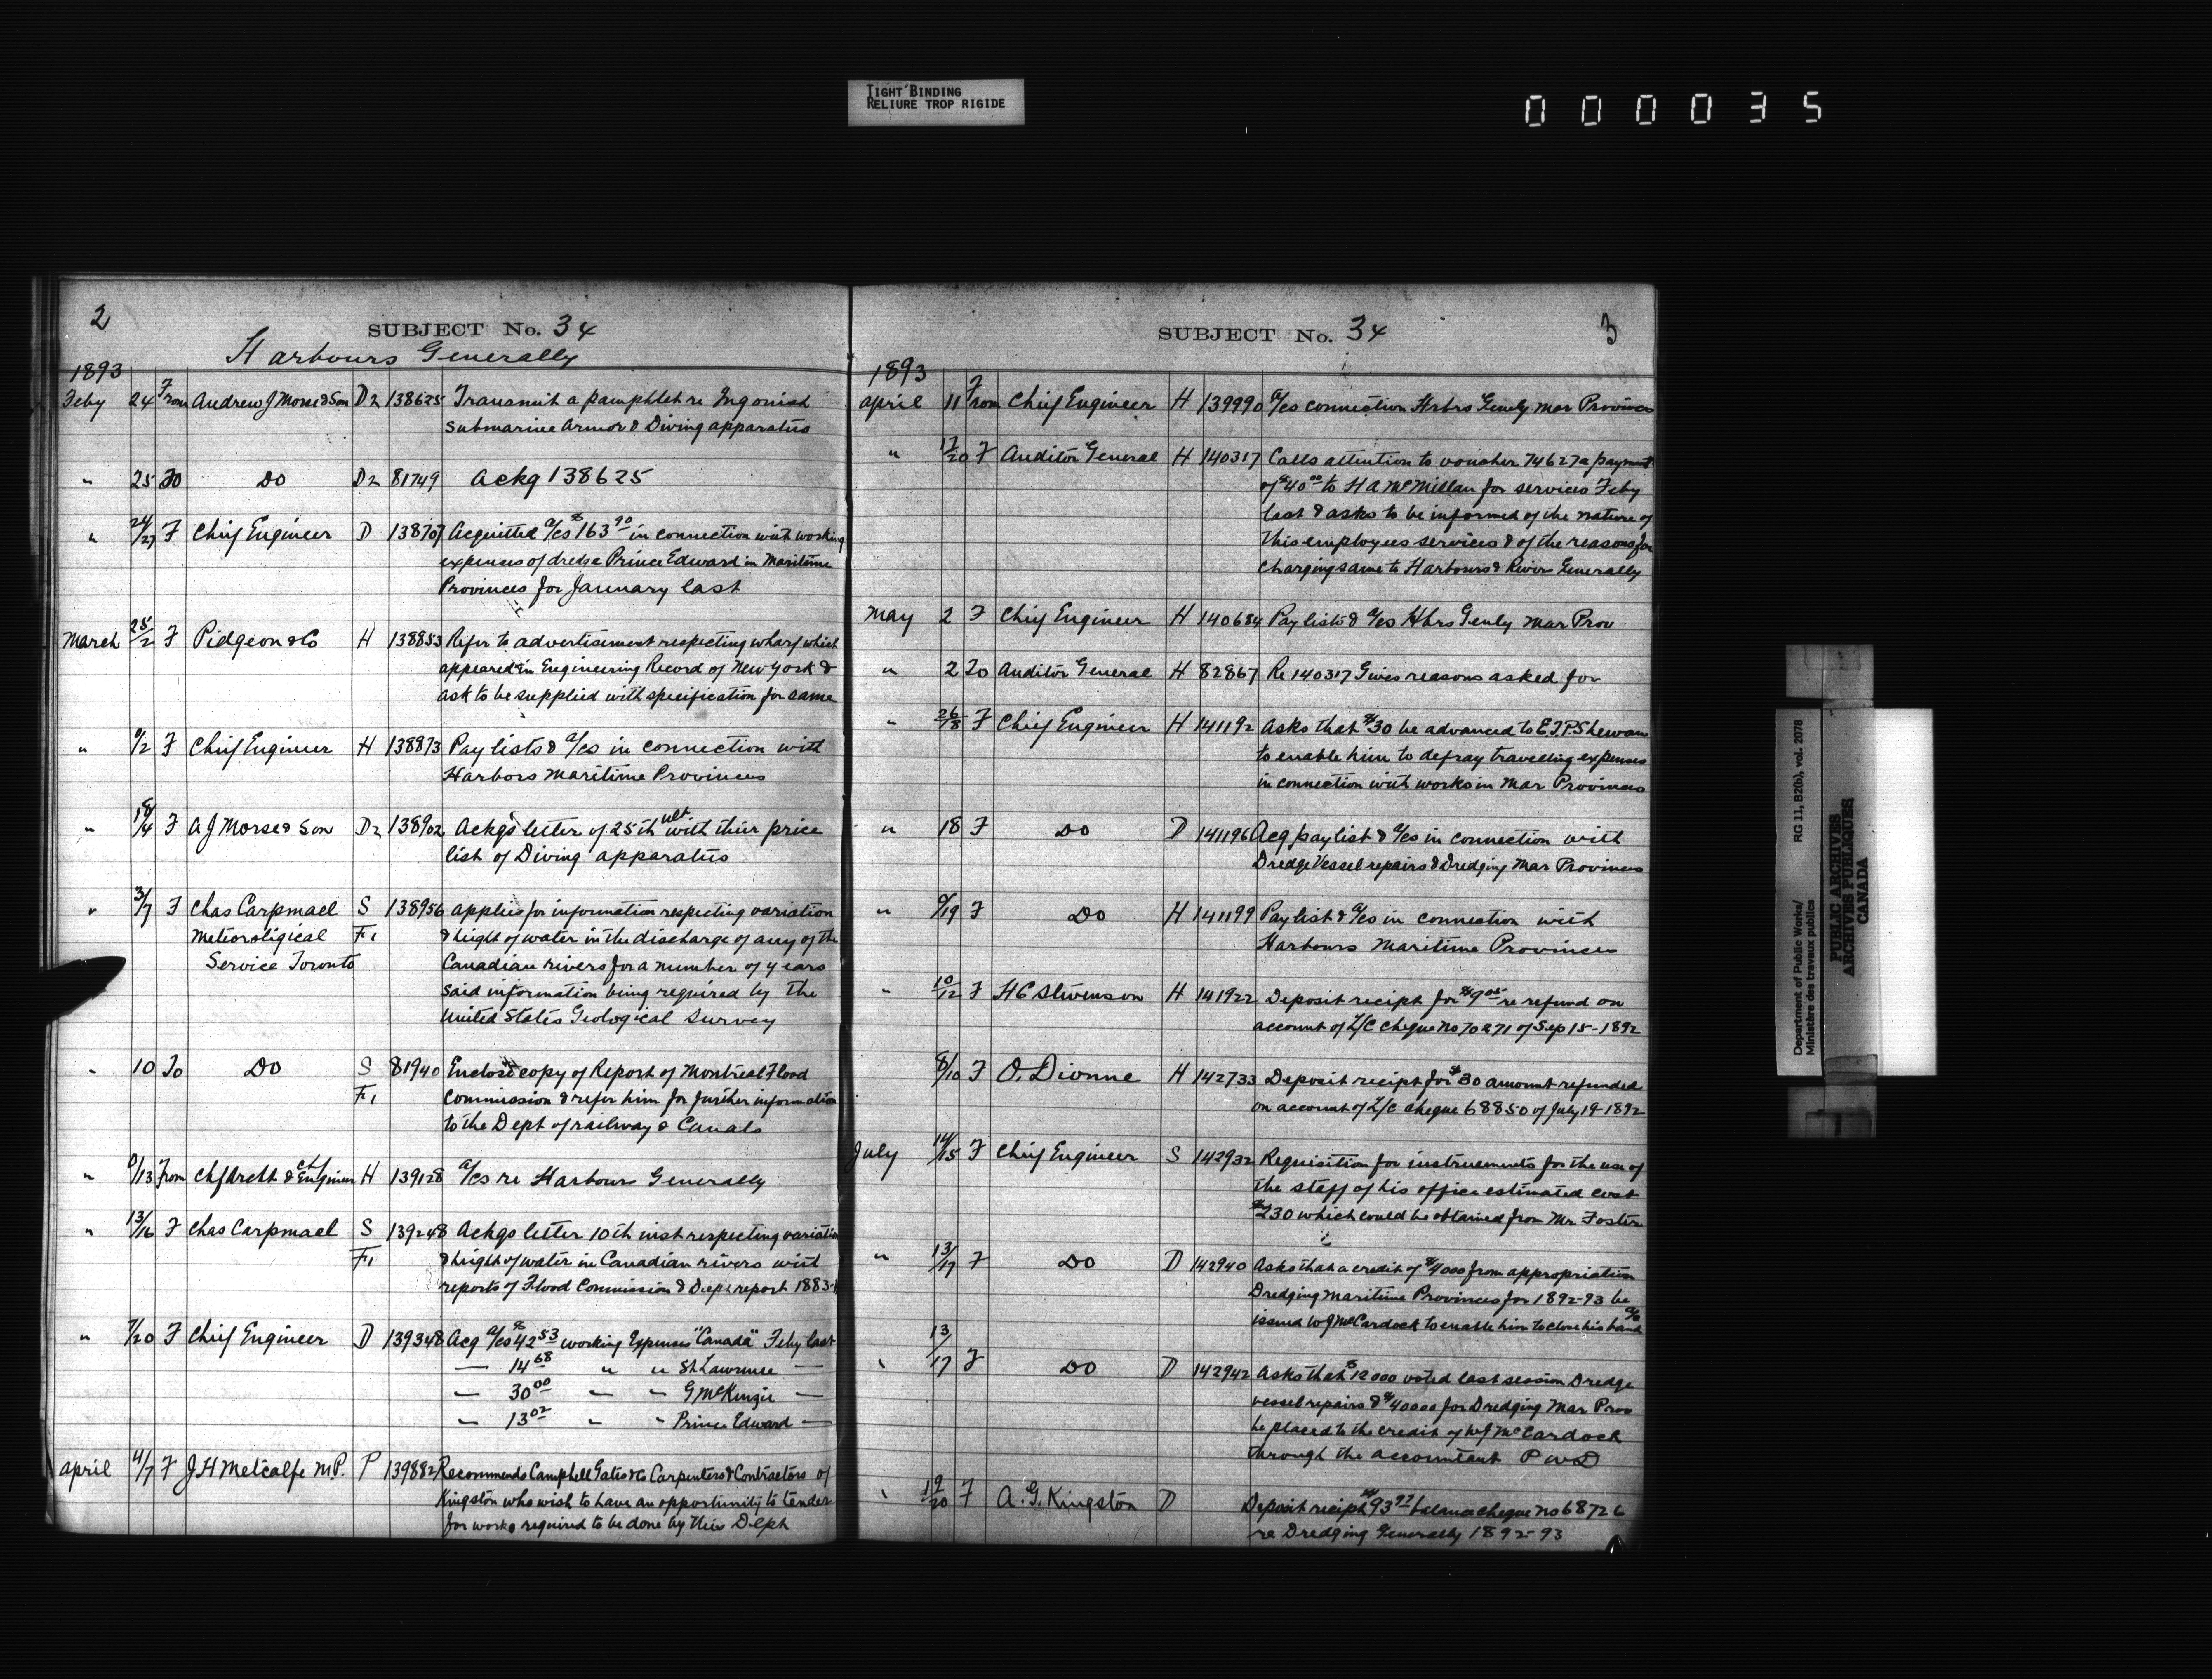 TIGHT BINDING
RELIURE TROP RIGIDE
000035
2
SUBJECT No. 34
Harbours Generally
1893
Feby 24 From Andrew J Morse & Son D2 138625 Transmit a pamphlet re
Submarine Armor & Diving apparatus
" 25 To Do D2 81749 Ackg 138625
" 24/27 F Chief Engineer D 138707 Acquitted a/cs $163 90 in connection with working
expenses of dredge Prince Edward in Maritime
Provinces for January last
March 25/2 F Pidgeon & Co H 138853 Refer to advertisement respecting wharf which
appeared in Engineering Record of New York &
ask to be supplied with specification for same
" /2 F Chief Engineer H 138873 Pay lists & a/cs in connection with
Harbors Maritime Provinces
" /4 F A J Morse & Son D2 138902 Ackgs letter of 25th ult. with their price
list of Diving apparatus
" 3/7 F Chas Carpmael S 138956 applies for information respecting variation
Meteorological F1 & height of water in the discharge of any of the
Service Toronto Canadian rivers for a number of years
said information being required by the
United States Geological Survey
" 10 To Do S 81940 Enclose copy of Report of Montreal Flood
F1 Commission & refer him for further information
to the Dept of railway & Canals
" /13 From Chf Archt & Chf Engineer H 139128 a/cs re Harbours Generally
" 13/16 F Chas Carpmael S 139248 Ackgs letter 10th inst respecting variation
F1 & height of water in Canadian rivers with
reports of Flood Commission & Depts report 1883-
" /20 F Chief Engineer D 139348 Acq a/cs $42 53 working Expenses "Canada" Feby last
— 14 68 " " St Lawrence —
— 30 00 " " G McKenzie —
— 13 02 " " Prince Edward —
April 4/7 F J H Metcalfe M.P. P 139882 Recommends Campbell Gates & Co Carpenters & Contractors of
Kingston who wish to have an opportunity to tender
for works required to be done by this Dept
SUBJECT No. 34
3
1893
April 11 From Chief Engineer H 139990 a/cs connection Hrbrs Genely Mar Provinces
" 17/20 F Auditor General H 140317 Calls attention to voucher 74627 a payment
of $40 00 to H A McMillan for services Feby
last & asks to be informed of the nature of
this employees services & of the reasons for
charging same to Harbours & Rivers Generally
May 2 F Chief Engineer H 140684 Pay lists & a/cs Hbrs Genly Mar Prov
" 2 To Auditor General H 82867 Re 140317 Gives reasons asked for
" 26/18 F Chief Engineer H 141192 Asks that $30 be advanced to E.T.P. Shewen
to enable him to defray travelling expenses
in connection with works in Mar Provinces
" 18 F Do D 141196 Acq pay list & a/cs in connection with
Dredge Vessel repairs & Dredging Mar Provinces
" /19 F Do H 141199 Pay list & a/cs in connection with
Harbours Maritime Provinces
" 10/12 F H C Stevenson H 141922 Deposit recipt for $9 05 re refund on
account of L/C cheque No 70271 of Sep 15-1892
8/10 F O. Dionne H 142733 Deposit recipt for $30 amount refunded
on account of L/C cheque 68850 of July 19-1892
July 14/15 F Chief Engineer S 142932 Requisition for instruements for the use of
the staff of his office estimated cost
$230 which could be obtained from Mr. Foster
" 13/17 F Do D 142940 Asks that a credit of $4000 from appropriation
Dredging Maritime Provinces for 1892-93 be
issued W J McCardock to enable him to close his bank a/c
" 13/17 F Do D 142942 Asks that $12000 voted last session Dredge
vessel repairs & $40000 for Dredging Mar Prov
be placed to the credit of W J McCardock
through the accountant P W D
" 19/20 F A. G. Kingston D Deposit recipt $93 97 balance cheque no 68726
re Dredging Generally 1892-93
Department of Public Works/
Ministère des travaux publics
RG 11, B2(b), vol. 2078
PUBLIC ARCHIVES
ARCHIVES PUBLIQUES
CANADA